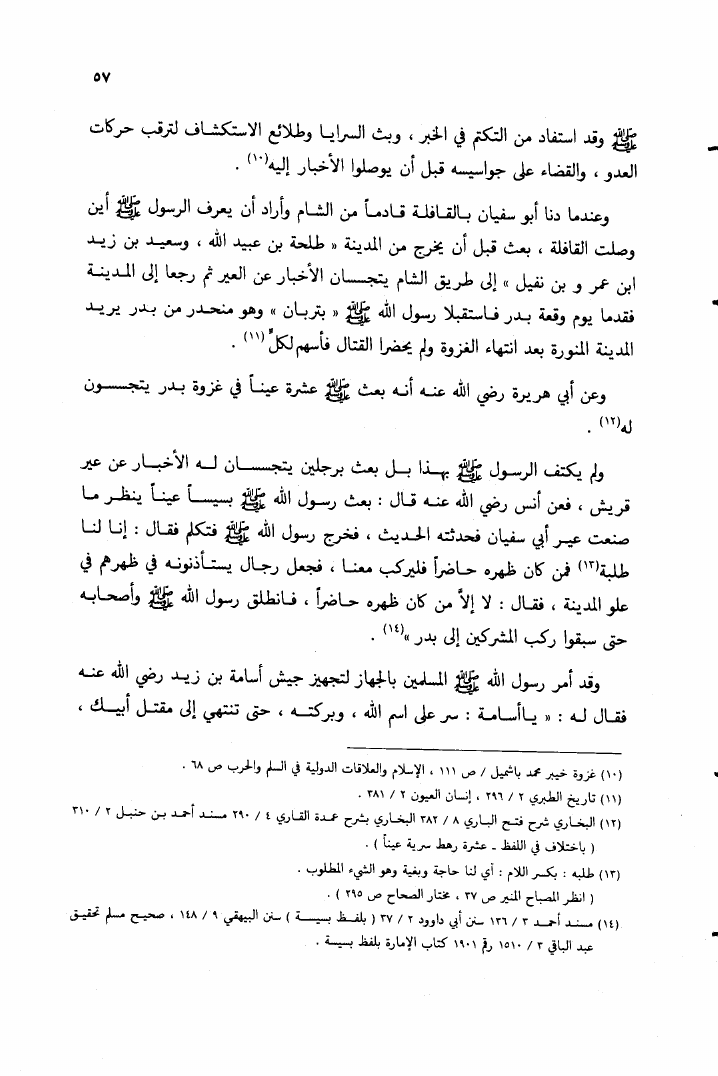 ٥٧
ﷺ وقد استفاد من التكتم في الخبر ، وبث السرايا وطلائع الاستكشاف لترقب حركات
العدو ، والقضاء على جواسيسه قبل أن يوصلوا الأخبار إليه(١٠) .
وعندما دنا أبو سفيان بالقافلة قادماً من الشام وأراد أن يعرف الرسول ﷺ أين
وصلت القافلة ، بعث قبل أن يخرج من المدينة « طلحة بن عبيد الله ، وسعيد بن زيد
ابن عمر و بن نفيل » إلى طريق الشام يتجسان الأخبار عن العير ثم رجعا إلى المدينة
فقدما يوم وقعة بدر فاستقبلا رسول الله ﷺ « بتربان » وهو منحدر من بدر يريد
المدينة المنورة بعد انتهاء الغزوة ولم يحضرا القتال فأسهم لكلٍّ(١١) .
وعن أبي هريرة رضي الله عنه أنه بعث ﷺ عشرة عيناً في غزوة بدر يتجسسون
له(١٢) .
ولم يكتف الرسول ﷺ بهذا بل بعث برجلين يتجسسان له الأخبار عن عير
قريش ، فعن أنس رضي الله عنه قال : بعث رسول الله ﷺ بسيساً عيناً ينظر ما
صنعت عير أبي سفيان فحدثته الحديث ، فخرج رسول الله ﷺ فتكلم فقال : إنا لنا
طلبة(١٣) فمن كان ظهره حاضراً فليركب معنا ، فجعل رجال يستأذنونه في ظهرهم في
علو المدينة ، فقال : لا إلاّ من كان ظهره حاضراً ، فانطلق رسول الله ﷺ وأصحابه
حتى سبقوا ركب المشركين إلى بدر »(١٤) .
وقد أمر رسول الله ﷺ المسلمين بالجهاز لتجهيز جيش أسامة بن زيد رضي الله عنه
فقال له : « ياأسامة : سر على اسم الله ، وبركته ، حتى تنتهي إلى مقتل أبيك ،
(١٠) غزوة خيبر محمد باشميل / ص ١١١ ، الإسلام والعلاقات الدولية في السلم والحرب ص ٦٨ .
(١١) تاريخ الطبري ٢ / ٢٩٦ ، إنسان العيون ٢ / ٣٨١ .
(١٢) البخاري شرح فتح الباري ٨ / ٣٨٢ البخاري بشرح عمدة القاري ٤ / ٢٩٠ مسند أحمد بن حنبل ٢ / ٣١٠
( باختلاف في اللفظ ـ عشرة رهط سرية عيناً ) .
(١٣) طلبه : بكسر اللام : أي لنا حاجة وبغية وهو الشيء المطلوب .
( انظر المصباح المنير ص ٣٧ ، مختار الصحاح ص ٢٩٥ ) .
(١٤) مسند أحمد ٣ / ١٣٦ سنن أبي داوود ٢ / ٣٧ ( بلفظ بسيسة ) سنن البيهقي ٩ / ١٤٨ ، صحيح مسلم تحقيق
عبد الباقي ٣ / ١٥١٠ رقم ١٩٠١ كتاب الإمارة بلفظ بسيسة .